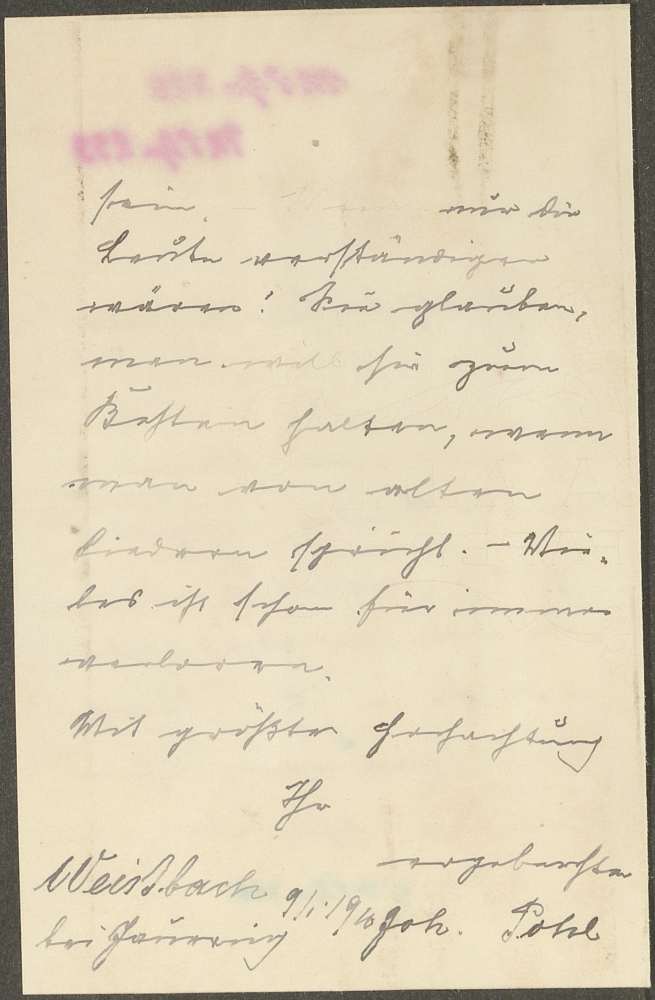 sein. Wenn nur die
Leute verständiger
wären! Sie glauben,
man will sie zum
Besten halten, wenn
man von alten
Liedern spricht. – Vie-
les ist schon für immer
verloren.
Mit größter Hochachtung
Ihr
ergebenster
Weißbach 9/1. 1910 Joh. Pohl
bei Jauernig